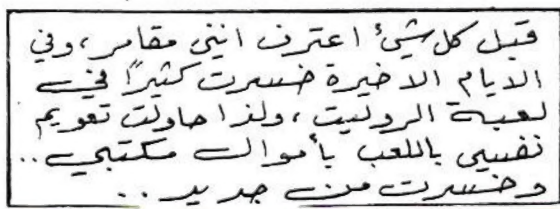 قبل كل شيئ اعترف انني مقامر، وفي
الايام الاخيرة خسرت كثيرًا في
لعبة الروليت، ولذا حاولت تعويم
نفسيي باللعب بأموال مكتبي..
وخسرت من جديد..